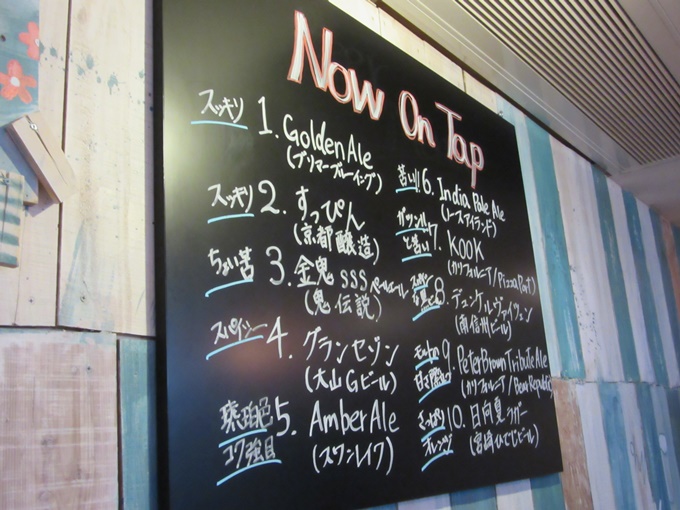 Now On Tap
スッキリ 1. Golden Ale
(ブリマーブルーイング)
スッキリ 2. すっぴん
(京都醸造)
ちょい苦 3. 金鬼 SSS ペールエール
(鬼伝説)
スパイシー 4. グランセゾン
(大山Gビール)
琥珀色
コク強目 5. Amber Ale
(スワンレイク)
苦い!! 6. India Pale Ale
(ノースアイランド)
ガツンと
苦い 7. KOOK
(カリフォルニア/Pizza Port)
8. デュンケルヴァイツェン
(南信州ビール)
9. Peter Brown Tribute Ale
(カリフォルニア/Bear Republic)
さっぱり
オレンジ 10. 日向夏ラガー
(宮崎ひでじビール)